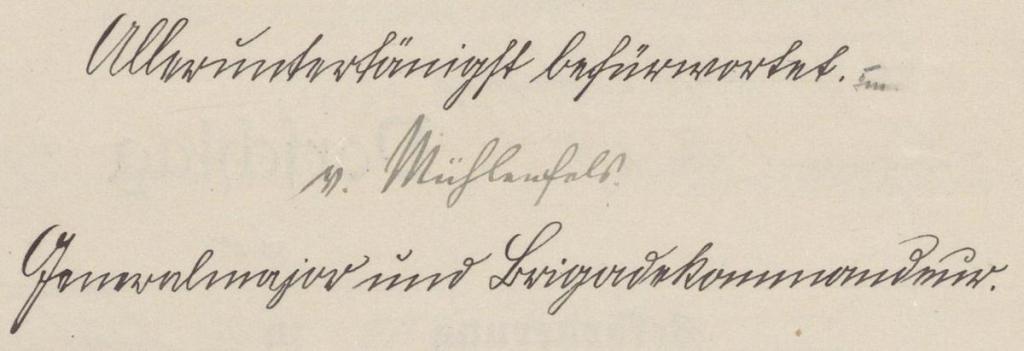 Alleruntertänigst befürwortet.
v. Mühlenfels.
Generalmajor und Brigadekommandeur.